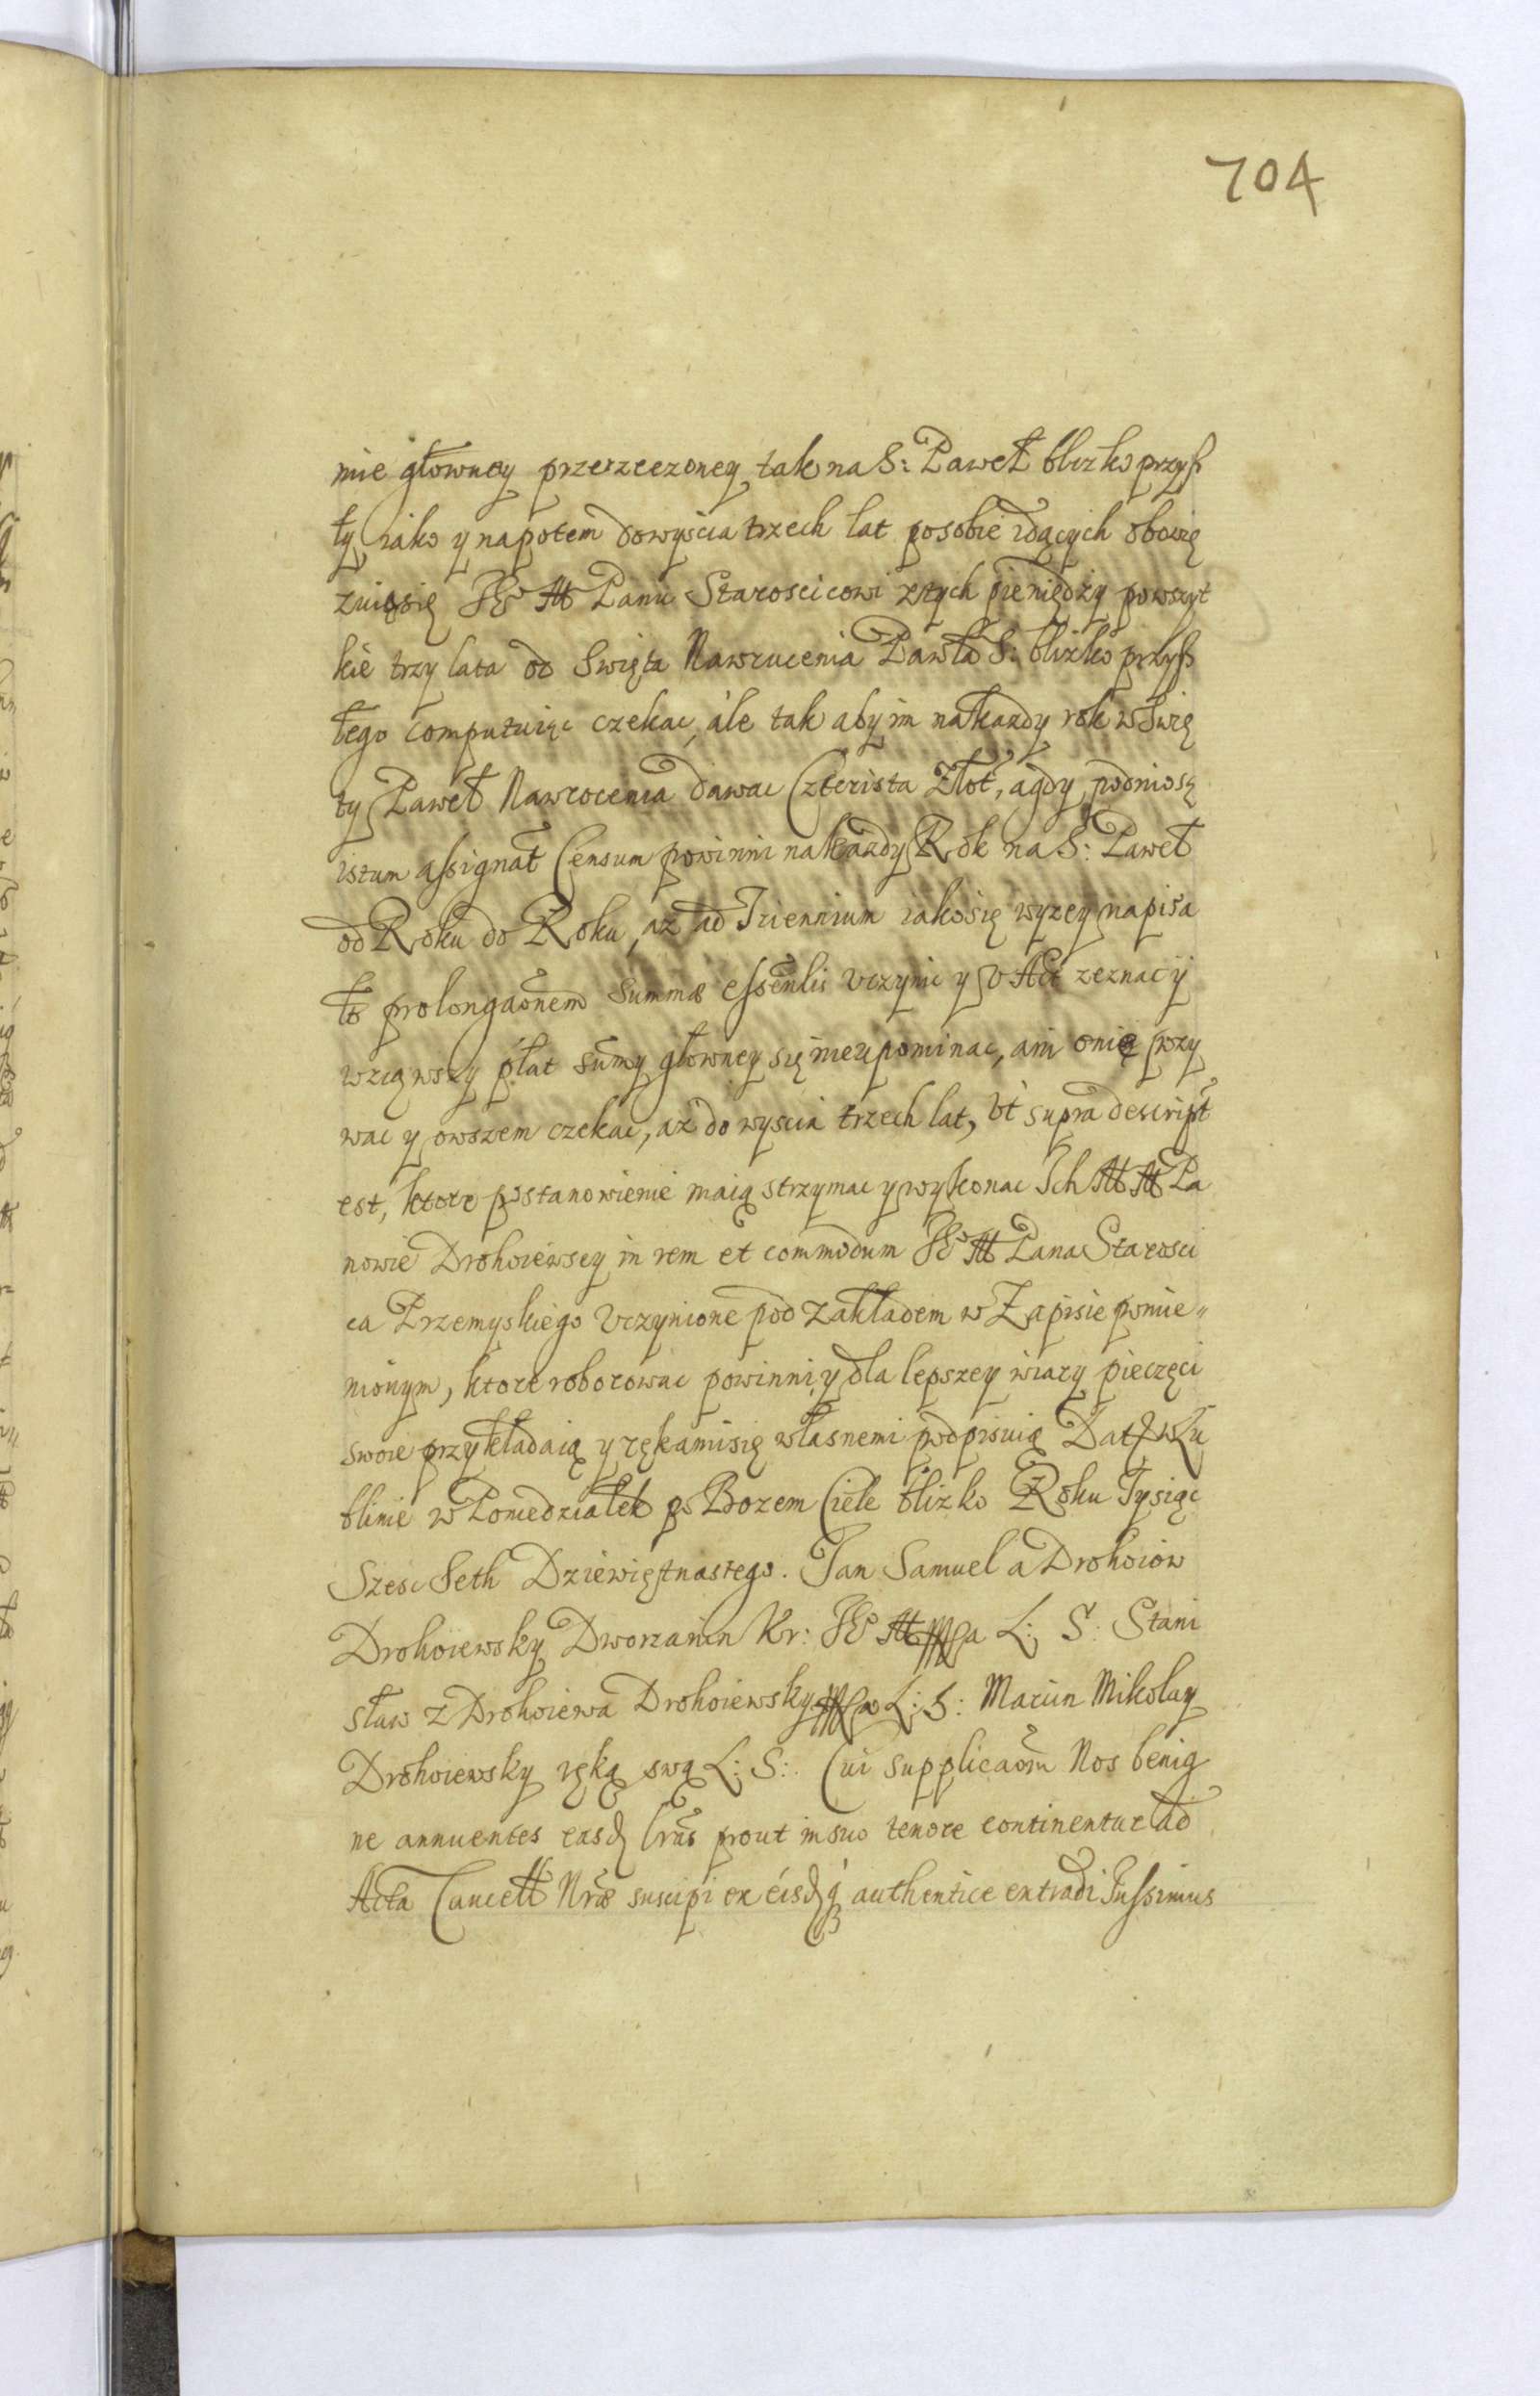 704
mie głowney przerzeczoney tak na S: Paweł blizko przyſz
ły iako y napotem dowyścia trzech lat posobie idących obowię
zuiąsię JE° M Panu Staroscicowi ztych pieniędzy powszyt
kie trzy lata od Swięta Nawrucenia Pawła S: blizko przyſz
łego computuiąc czekac, ále tak aby im nakazdy rok w Swię
ty Paweł Nawrocenia dawac Czterista Złot, agdy podniosę
istum aſsignat Censum powinni nakazdy Rok na S: Paweł
od Roku do Roku, az ad Triennium iakosię wyzey napisa
ło prolongaõnem Summæ eſsenlis Uczynic y U Act zeznac ÿ
wziąwszy płat sumy głowney się nieupominac, ani onię
wac y owszem czekac, aż do wyscia trzech lat, Vt supra descript
est, ktore postanowienie maią strzymac y wykonac Ich M M Pa
nowie Drohoiewsey in rem et commodum JE° M Pana Starosci
ca Przemyskiego Uczynione pod Zakładem w Zapisie pomie„
nionym, ktore roborowac powinni, y dla lepszey wiary pieczęci
swoie przykładaią y rękamisię własnemi podpisuią Dat w Lu
blinie w Poniedziałek po Bozem Ciele blizko Roku Tysiąc
Szesc Seth Dziewięſtnastego. Jan Samuel a Drohoiow
Drohoiewsky Dworzanin Kr: JE° M L: S: Stani
sław z Drohoiewa Drohoiewsky L: S: Marcin Mikołay
Drohoiewsky ręką swą L: S: Cui supplicaõni Nos benig
ne annuentes easd lras prout in suo tenore continentur ad
Acta Cancell Nræ suscipi ex éisdq́ authentice extradi Juſsimus